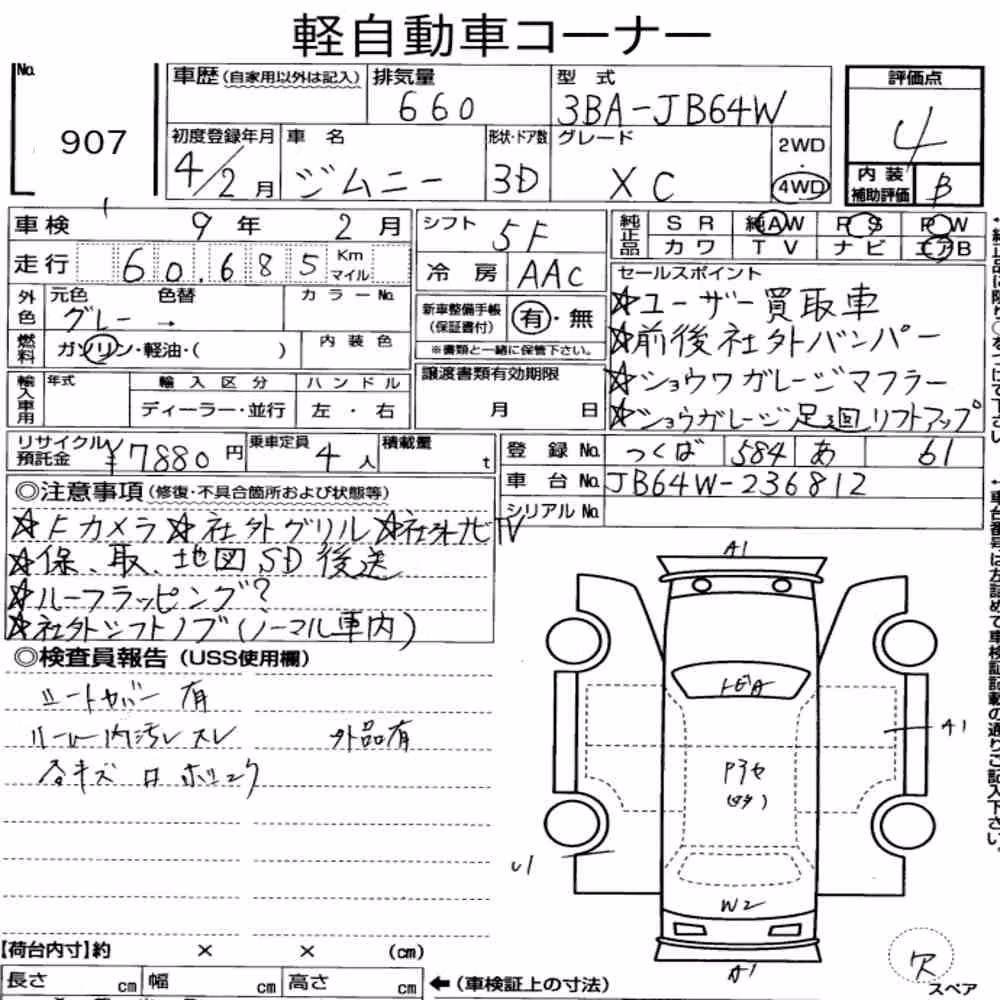 軽自動車コーナー
No. 907
車歴 (自家用以外は記入)
排気量 660
型式 3BA-JB64W
評価点 4
初度登録年月 4/2月
車名 ジムニー
形状・ドア数 3D
グレード XC
2WD・4WD
内装補助評価 B
車検 9年 2月
シフト 5F
純正品 SR 純AW PS PW
カワ TV ナビ エアB
走行 60,685 Km マイル
冷房 AAC
外色 元色 グレー → 色替 カラーNo.
燃料 ガソリン・軽油・( ) 内装色
新車整備手帳(保証書付) 有・無
※書類と一緒に保管下さい。
セールスポイント
☆ユーザー買取車
☆前後社外バンパー
☆ショウワガレージマフラー
☆ショウガレージ足廻リフトアップ
輸入車用 年式 輸入区分 ハンドル
ディーラー・並行 左・右
譲渡書類有効期限
月 日
リサイクル預託金 ¥7880円
乗車定員 4人
積載量 t
登録No. つくば 584 あ 61
車台No. JB64W-236812
シリアルNo.
◎注意事項 (修復・不具合箇所および状態等)
☆Fカメラ☆社外グリル☆社外ナビTV
☆保、取、地図SD後送
☆ルーフラッピング?
☆社外シフトノブ(ノーマル車内)
◎検査員報告 (USS使用欄)
シートカバー 有
内汚レ スレ 外品有
キズ
A1
A1
U1
W2
A1
【荷台内寸】約 × × (cm)
長さ cm 幅 cm 高さ cm
←(車検証上の寸法)
欠
スペア